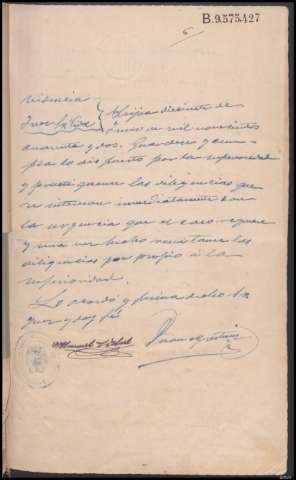 B.9.575.427
Providencia
Juez Sr. Vidal } diecisiete de
Enero de mil novecientos
cuarenta y dos. Guardese y cum-
pla lo dispuesto por la superioridad
y practiquense las diligencias que
se interesan inmediatamente con
la urgencia que el caso requiere
y una vez hecho remitanse las
diligencias por propio á la
superioridad.
Lo acordó y firma dicho Sr.
Juez y doy fé
Manuel Vidal